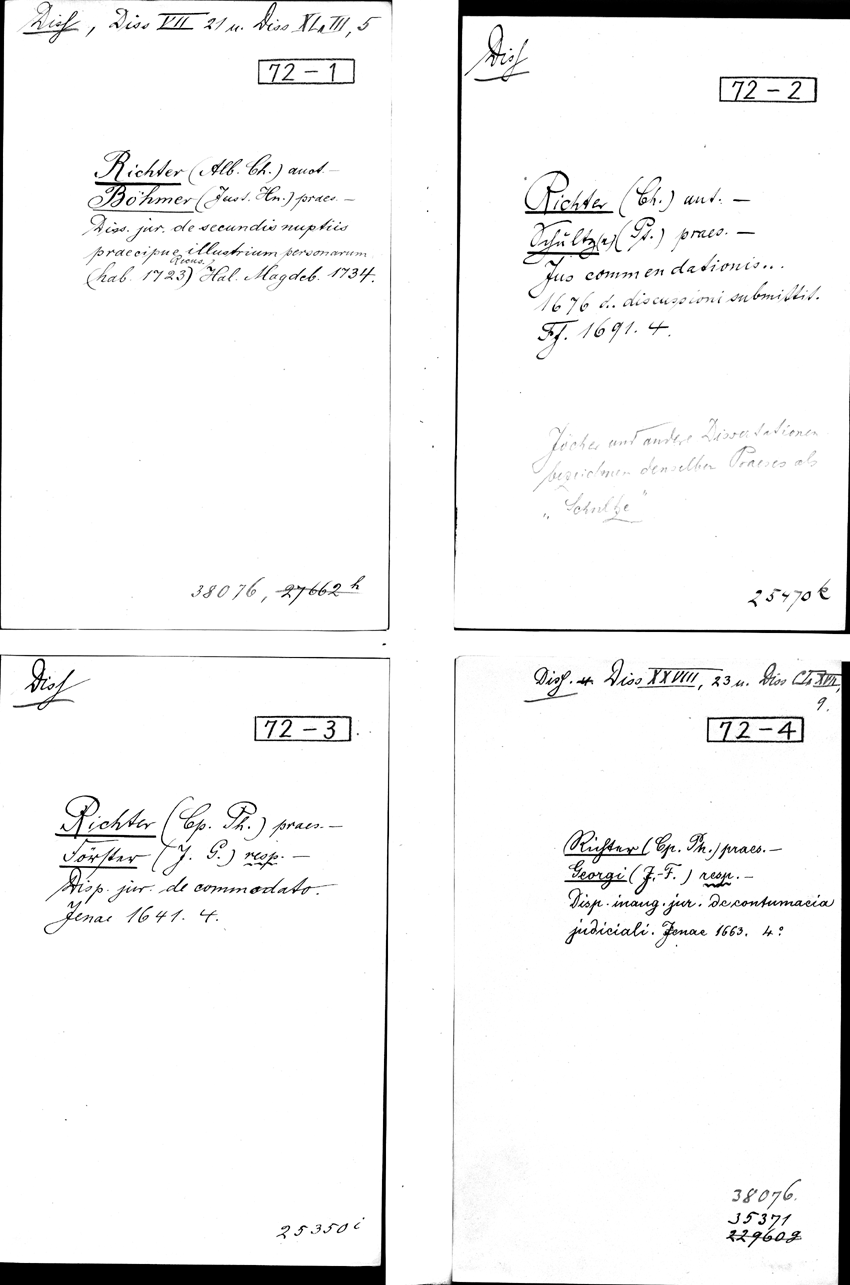 Diss, Diss VII 21 u. Diss XLVIII, 5
72-1
Richter (Alb. Ch.) auct. —
Böhmer (Just. Hn.) praes. —
Diss. jur. de secundis nuptiis
praecipue illustrium personarum
(hab. 1723) Recus. Hal. Magdeb. 1734.
38076, 27662h
Diss
72-2
Richter (Ch.) aut. —
Schultz(e) (Pt.) praes. —
Jus commendationis...
1676 d. discussioni submittit.
Ff. 1691. 4.
Jöcher und andere Dissertationen
bezeichnen denselben Praeses als
„Schultze"
25470k
Diss
72-3
Richter (Cp. Ph.) praes. —
Förster (J. G.) resp. —
Disp. jur. de commodato.
Jenae 1641. 4.
25350i
Diss. u. Diss XXVIII, 23 u. Diss
9.
72-4
Richter (Cp. Ph.) praes. —
Georgi (J.-F.) resp. —
Disp. inaug. jur. de contumacia
judiciali. Jenae 1663. 4°
38076.
35371
22960g